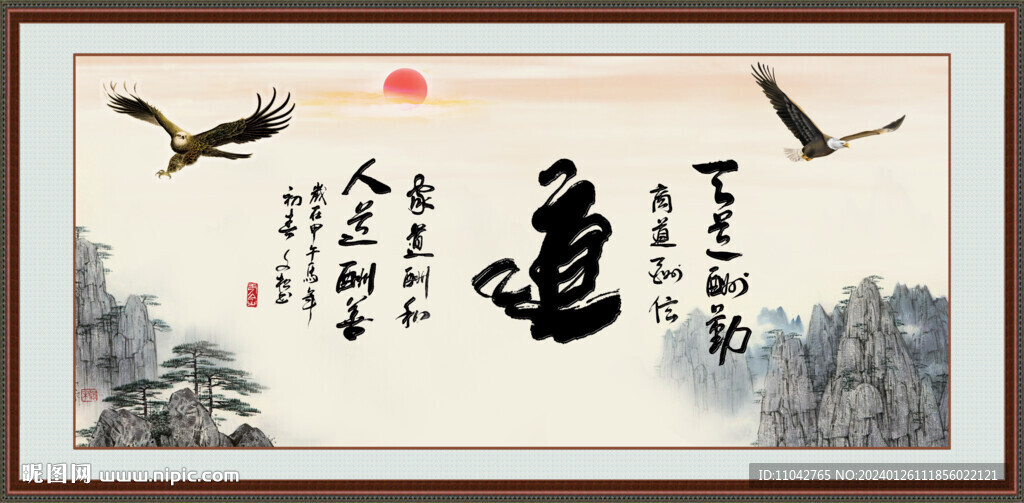 天道酬勤
商道酬信
道
家道酬和
人道酬善
歲在甲午馬年
初春
昵图网 www.nipic.com
ID:11042765 NO:20240126111856022121